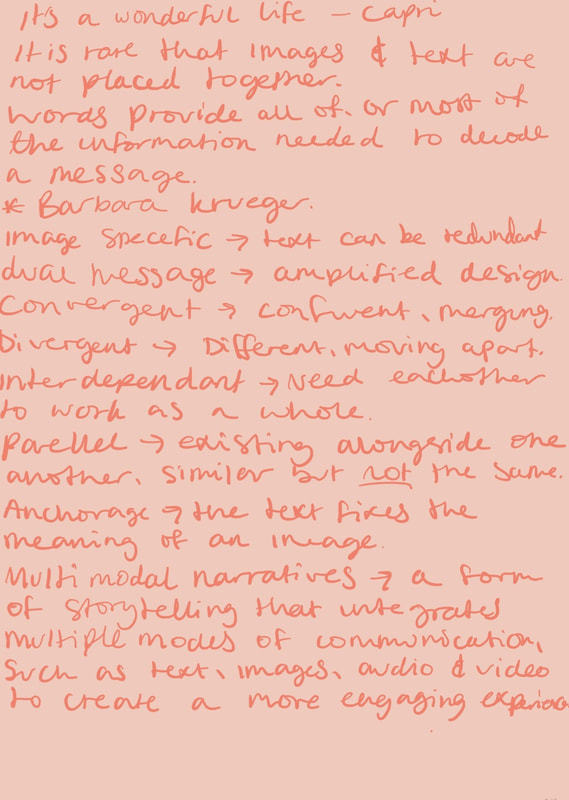 It's a wonderful life – Capri
It is rare that images & text are
not placed together.
Words provide all of. or most of
the information needed to decode
a message.
* Barbara Krueger.
Image specefic → text can be redundant
dual message → amplified design.
Convergent → confluent, merging.
Divergent → Different, moving apart.
Interdependant → Need eachother
to work as a whole.
Parellel → existing alongside one
another. Similar but not the same.
Anchorage → the text fixes the
meaning of an image.
Multi modal narratives → a form
of storytelling that integrates
multiple modes of communication,
Such as text, images, audio & video
to create a more engaging experience